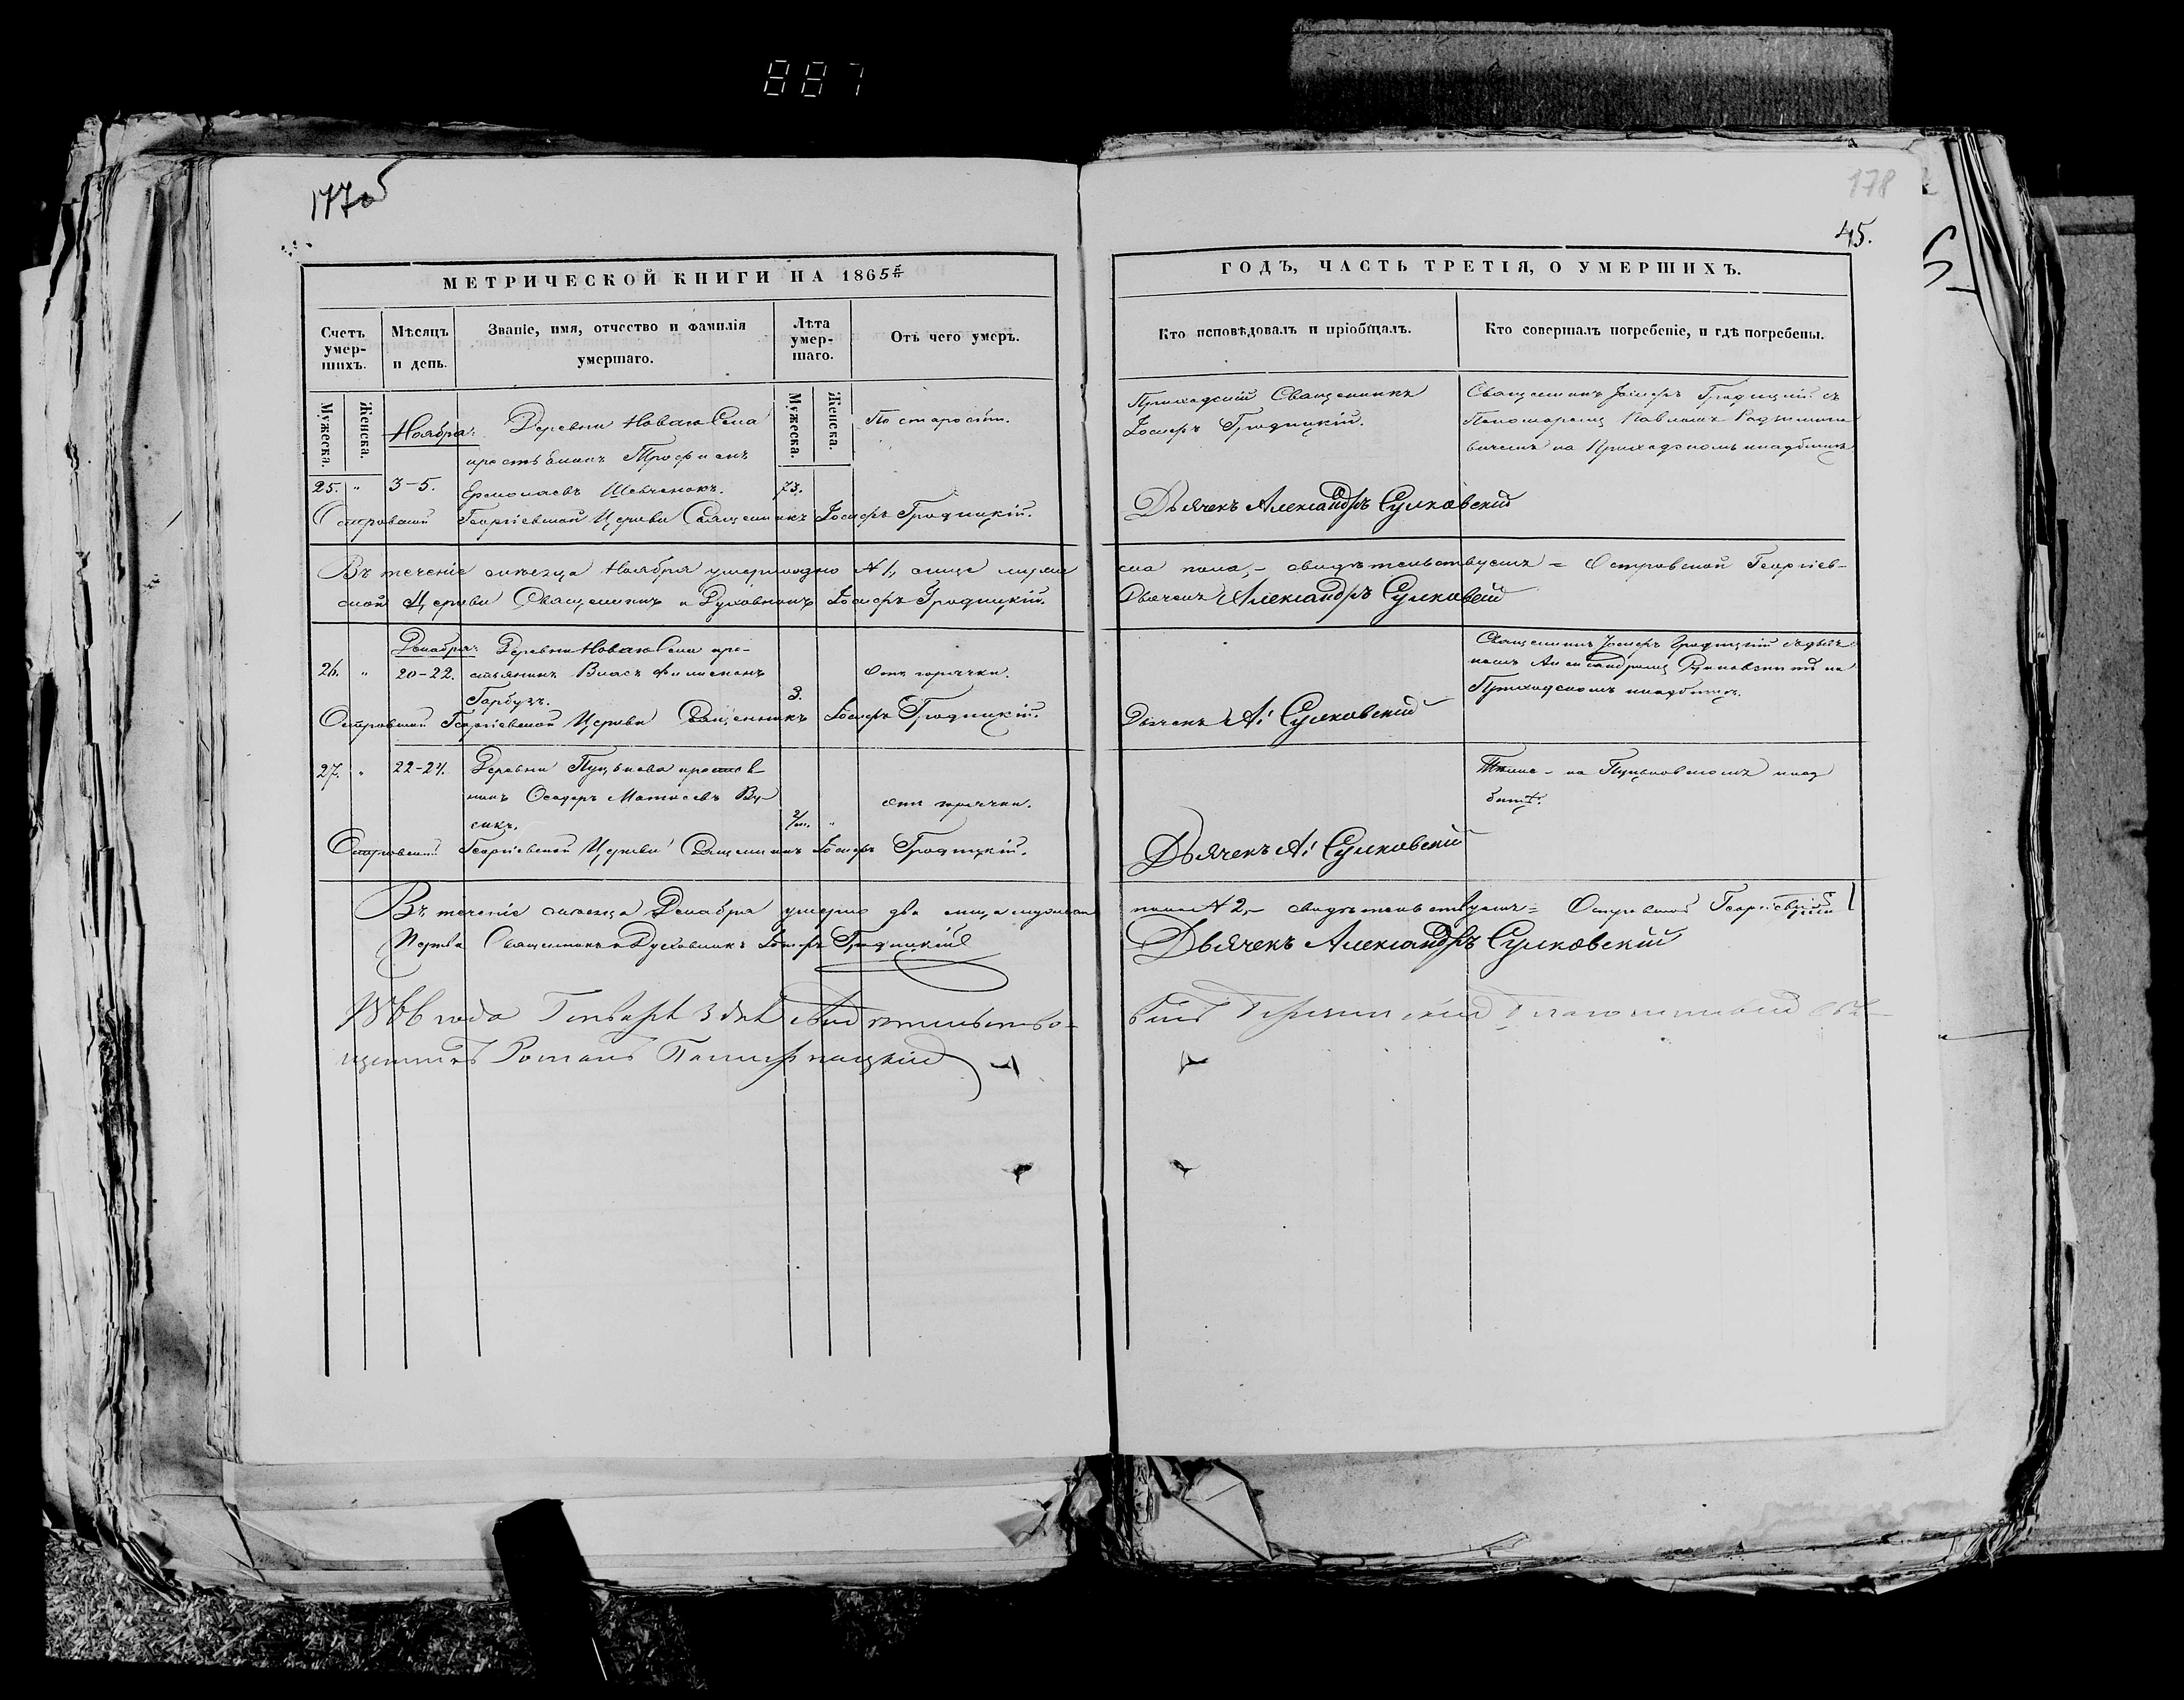 887
177об
178
45.
МЕТРИЧЕСКОЙ КНИГИ НА 1865й
ГОДЪ, ЧАСТЬ ТРЕТІЯ, О УМЕРШИХЪ.
Счетъ умер-
шихъ.
Мѣсяцъ
и день.
Званіе, имя, отчество и фамилія
умершаго.
Лѣта
умер-
шаго.
Отъ чего умеръ.
Кто исповѣдовалъ и пріобщалъ.
Кто совершалъ погребеніе, и гдѣ погребены.
Мужеска.
Женска.
Мужеска.
Женска.
Ноября:
Деревни Новаго Села
крестьянинъ Трофимъ
25. " 3-5. Ермолаевъ Шевченокъ. 73.
По старости.
Приходскій Священникъ
Іосифъ Гродицкій.
Священникъ Іосифъ Гродицкій съ
Пономаремъ Павломъ
на Приходскомъ кладбищѣ
Островской Георгіевской Церкви Священникъ Іосифъ Гродицкій.
Дьячекъ Александръ Сулковскій
Въ теченіе мѣсяца Ноября умерло одно №1, лице мужес
ска пола,- свидѣтельствуемъ = Островской Георгіев-
ской Церкви Священникъ и Духовникъ Іосифъ Гродицкій.
Дьячекъ Александръ Сулковскій
Декабря:
Деревни Новаго Села кре-
26. " 20-22. стьянинъ Власъ Филимонъ
Гарбузъ. 3.
Отъ горячки.
Священникъ Іосифъ Гродицкій съ дьяч
комъ Александромъ на
Приходскомъ кладбищѣ.
Островской Георгіевской Церкви Священникъ Іосифъ Гродицкій.
Дьячекъ А: Сулковскій
27. " 22-24. Деревни Пуцькова крестья
нинъ Ѳеодоръ Матвѣевъ Ву-
сикъ. "
отъ горячки.
Тѣже - на Пуцьковскомъ клад
бищѣ.
Островской Георгіевской Церкви Священникъ Іосифъ Гродицкій.
Дьячекъ А: Сулковскій
Въ теченіе мѣсяца Декабря умерло два лица мужеска
пола №2,- свидѣтельствуемъ = Островской Георгіевской
Церкви Священникъ и Духовникъ Іосифъ Гродицкій
Дьячекъ Александръ Сулковскій
1866 года Генваря 3 дня свидѣтельство-
валъ Благочинный Свя-
щенникъ Романъ